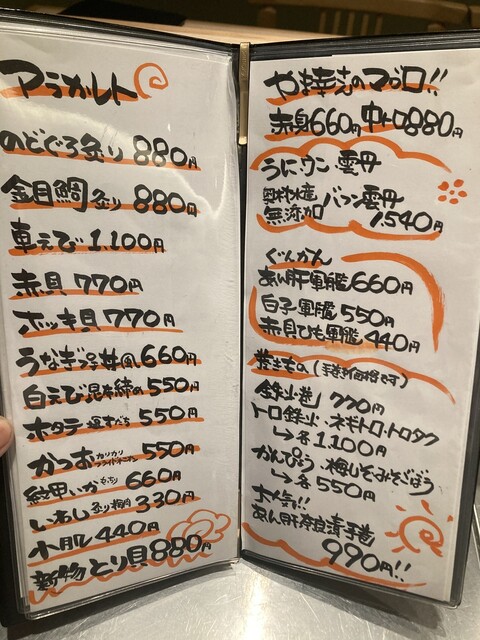 アラカルト
のどぐろ炙り 880円
金目鯛炙り 880円
車えび 1,100円
赤貝 770円
ホッキ貝 770円
うなぎプチ丼風 660円
白えび昆布締め 550円
ホタテ 塩すだち 550円
かつお カリカリフライドオニオン 550円
紋甲いか 660円
いわし 炙り梅肉 330円
小肌 440円
新物 とり貝 880円
やま幸さんのマグロ!!
赤身660円 中トロ880円
うに・ウニ・雲丹
奥村水産
無添加 バフン雲丹
1,540円
ぐんかん
あん肝軍艦 660円
白子軍艦 550円
赤貝ひも軍艦 440円
巻きもの(手巻き価格です)
鉄火巻 770円
トロ鉄火・ネギトロ・トロタク
→各1,100円
かんぴょう・梅しそ・みそごぼう
→各550円
大人気!!
あん肝奈良漬手巻
990円!!